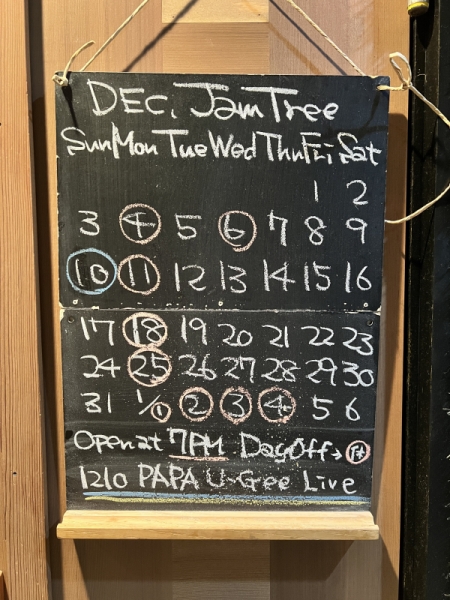 DEC. Jam Tree
Sun Mon Tue Wed Thu Fri Sat
1 2
3 4 5 6 7 8 9
10 11 12 13 14 15 16
17 18 19 20 21 22 23
24 25 26 27 28 29 30
31 1/1 2 3 4 5 6
Open at 7PM Day Off →
1210 PAPA U-Gee Live